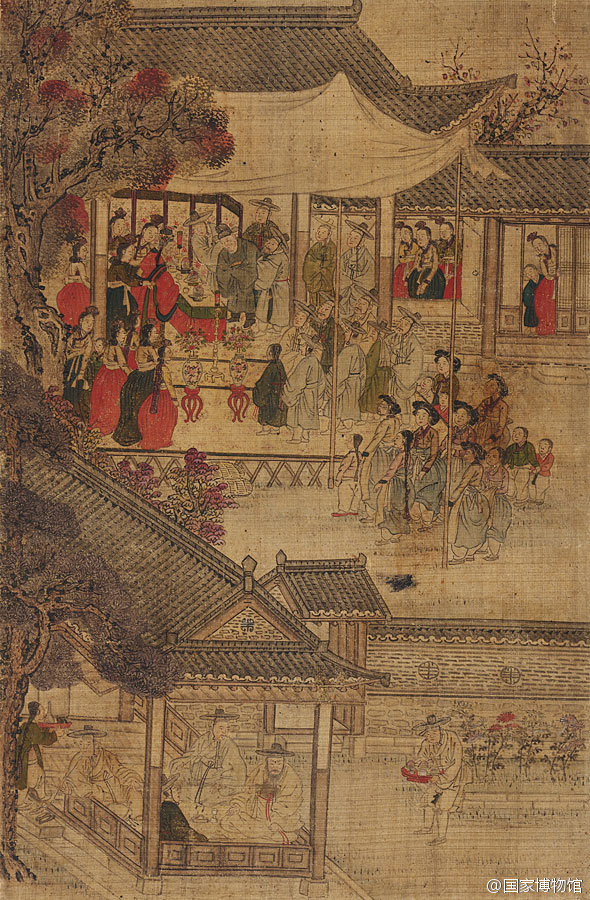 @国家博物馆